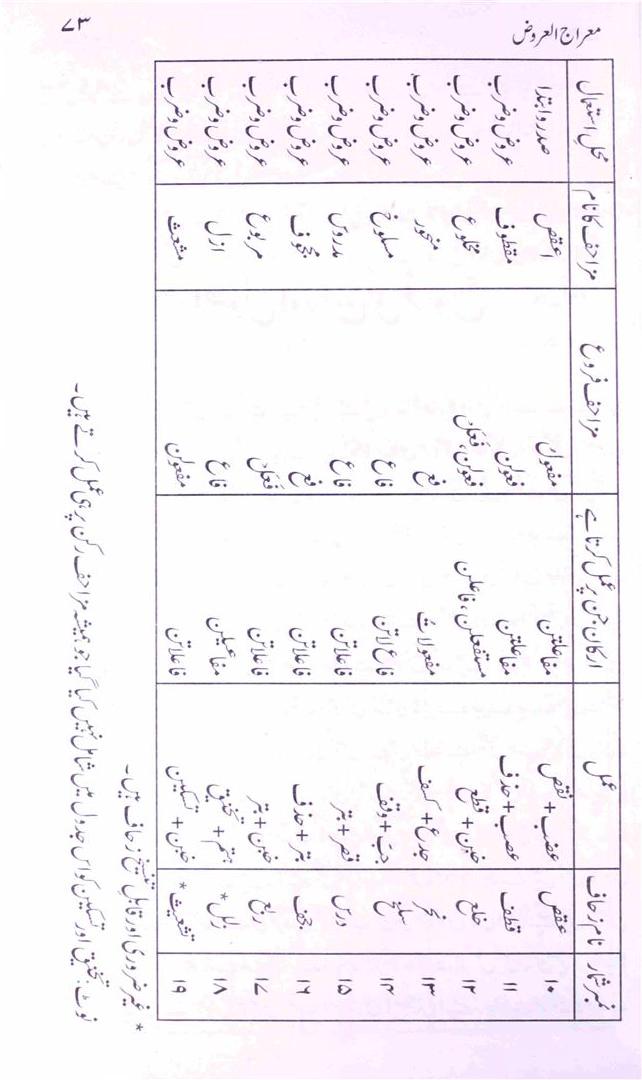 معراج العروض
۷۳
نمبر شمار | نام زحاف | عمل | ارکان جن پر عمل کرتا ہے | مزاحف فروع | مزاحف کا نام | محل استعمال
۱۰ | عقص | عضب + نقص | مفاعلتن | مفعولُ | اعقص | صدر و ابتدا
۱۱ | قطف | عصب + حذف | مفاعلتن | فعولن | مقطوف | عروض و ضرب
۱۲ | خلع | خبن + قطع | مستفعلن، فاعلن | فعولن، فَعَل | مخلوع | عروض و ضرب
۱۳ | نحر | جدع + کسف | مفعولاتُ | فع | منحور | عروض و ضرب
۱۴ | سلخ | جب + وقف | فاع لاتن | فاع | مسلوخ | عروض و ضرب
۱۵ | درس | قصر + بتر | فاعلاتن | فاع | مدروس | عروض و ضرب
۱۶ | جحف | بتر + حذف | فاعلاتن | فع | مجحوف | عروض و ضرب
۱۷ | ربع | خبن + بتر | فاعلاتن | فَعَل | مربوع | عروض و ضرب
۱۸ | زلل* | ہتم + تخنیق | مفاعیلن | فاع | ازل | عروض و ضرب
۱۹ | تشعیث* | خبن + تسکین | فاعلاتن | مفعولن | مشعث | عروض و ضرب
* غیر ضروری اور قابلِ تنسیخ زحاف ہیں۔
نوٹ: تخنیق اور تسکین کو اس جدول میں شامل نہیں کیا گیا جو ہمیشہ مزاحف رکن پر ہی عمل کرتے ہیں۔